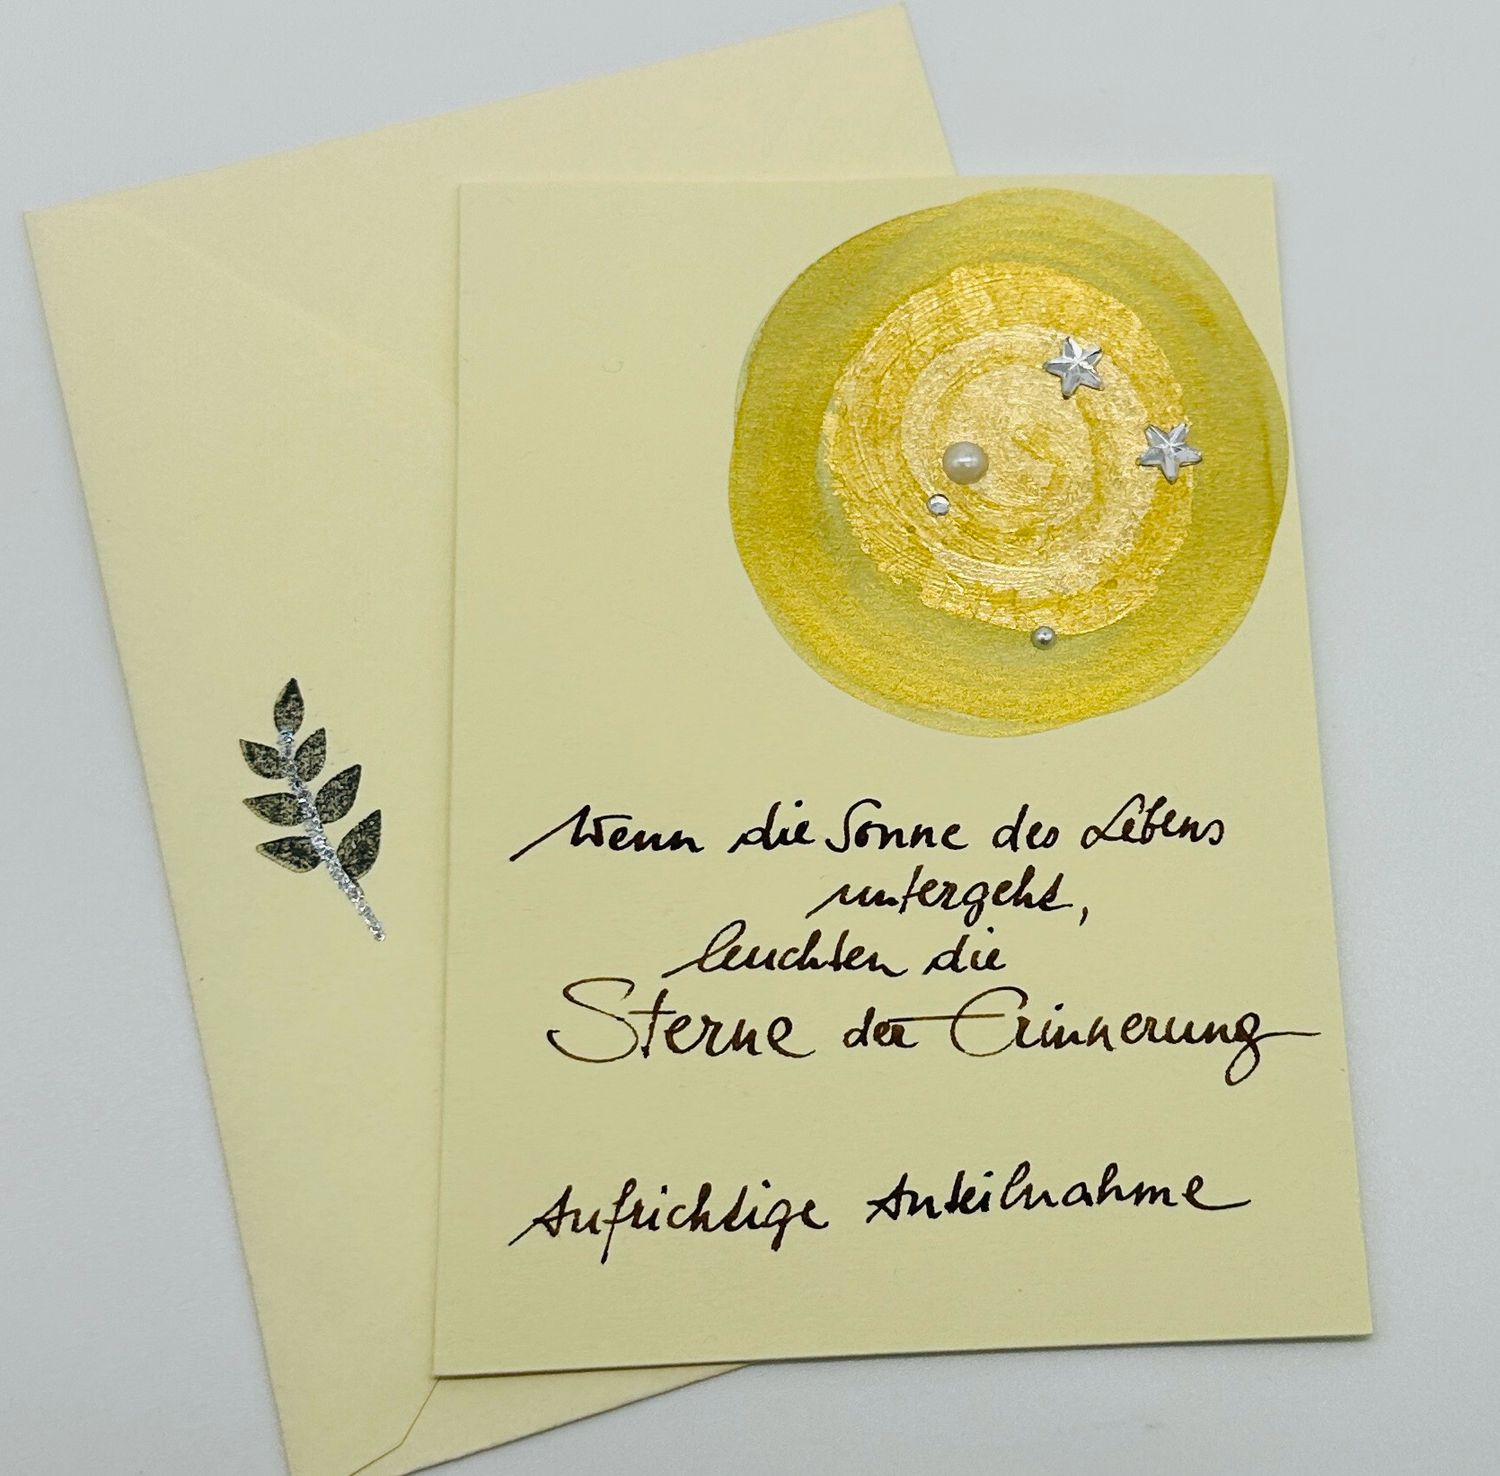 Wenn die Sonne des Lebens
untergeht,
leuchten die
Sterne der Erinnerung
Aufrichtige Anteilnahme